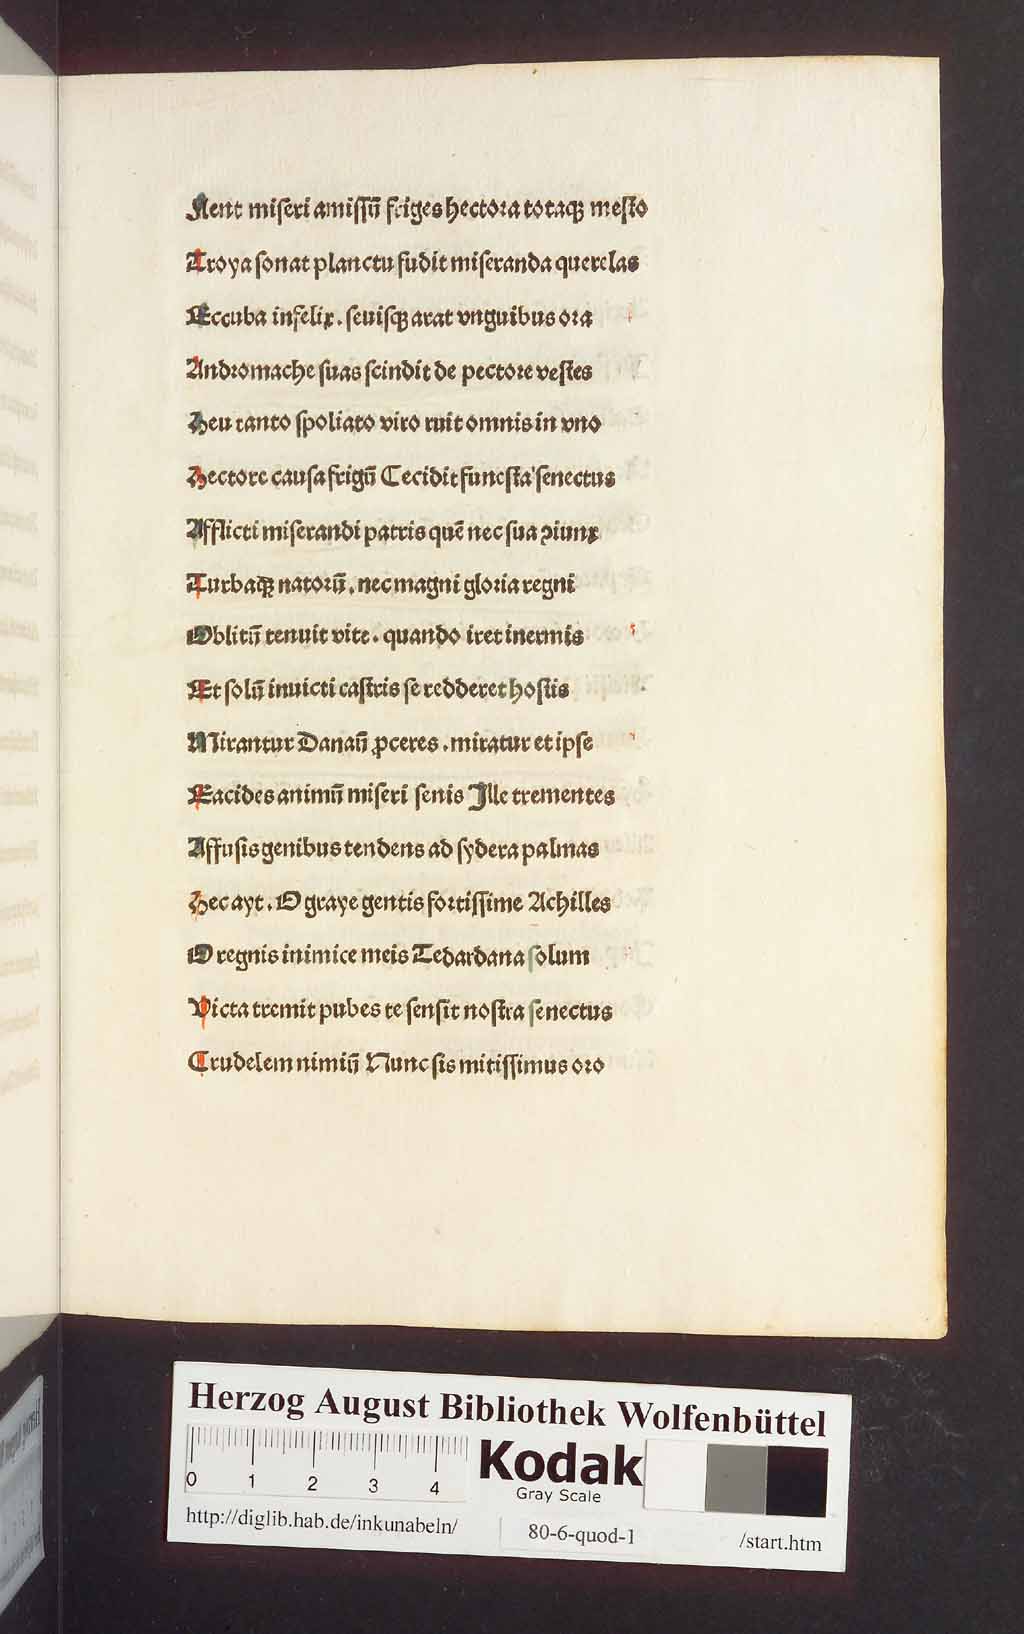 Flent miseri amissū friges hectora totaqꝫ mesto
Troya sonat planctu fudit miseranda querelas
Eccuba infelix. seuisqꝫ arat vnguibus ora
Andromache suas scindit de pectore vestes
Heu tanto spoliato viro ruit omnis in vno
Hectore causa frigū Cecidit funesta senectus
Afflicti miserandi patris quē nec sua ꝯiunx
Turbaqꝫ natorū. nec magni gloria regni
Oblitū tenuit vite. quando iret inermis
Et solū inuicti castris se redderet hostis
Mirantur Danaū ꝓceres. miratur et ipse
Eacides animū miseri senis Ille trementes
Affusis genibus tendens ad sydera palmas
Hec ayt. O graye gentis fortissime Achilles
O regnis inimice meis Te dardana solum
Victa tremit pubes te sensit nostra senectus
Crudelem nimiū Nunc sis mitissimus oro
Herzog August Bibliothek Wolfenbüttel
0 1 2 3 4
Kodak
Gray Scale
http://diglib.hab.de/inkunabeln/ 80-6-quod-1 /start.htm